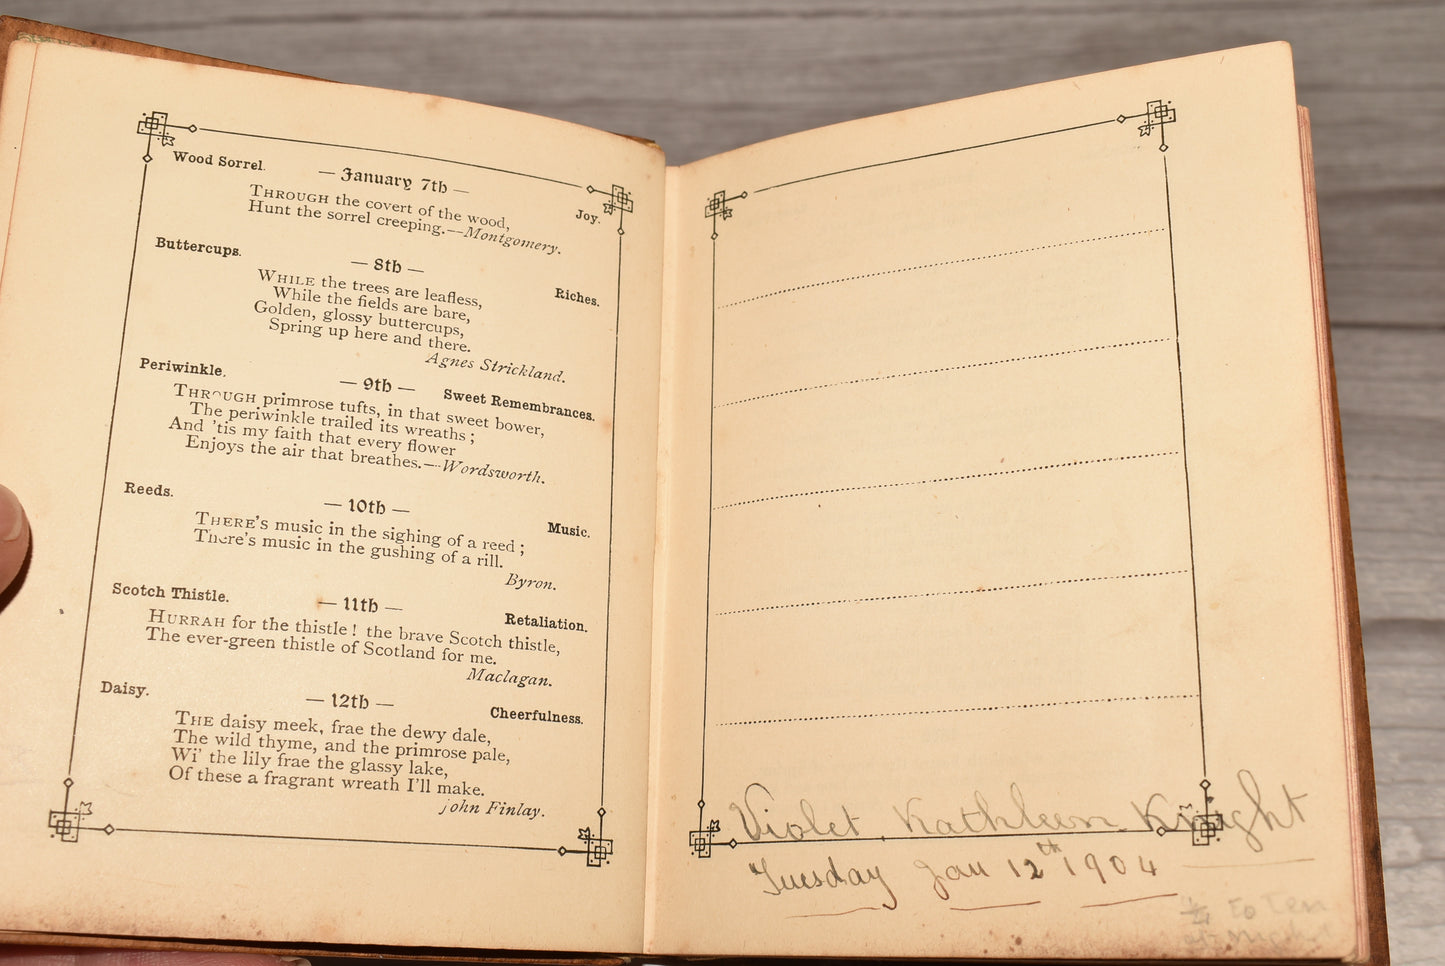 Wood Sorrel.
— January 7th —
Joy.
THROUGH the covert of the wood,
Hunt the sorrel creeping.—Montgomery.
Buttercups.
— 8th —
Riches.
WHILE the trees are leafless,
While the fields are bare,
Golden, glossy buttercups,
Spring up here and there.
Agnes Strickland.
Periwinkle.
— 9th —
Sweet Remembrances.
THROUGH primrose tufts, in that sweet bower,
The periwinkle trailed its wreaths ;
And 'tis my faith that every flower
Enjoys the air that breathes.—Wordsworth.
Reeds.
— 10th —
Music.
THERE'S music in the sighing of a reed ;
There's music in the gushing of a rill.
Byron.
Scotch Thistle.
— 11th —
Retaliation.
HURRAH for the thistle ! the brave Scotch thistle,
The ever-green thistle of Scotland for me.
Maclagan.
Daisy.
— 12th —
Cheerfulness.
THE daisy meek, frae the dewy dale,
The wild thyme, and the primrose pale,
Wi' the lily frae the glassy lake,
Of these a fragrant wreath I'll make.
John Finlay.
Violet Kathleen Knight
Tuesday Jan 12th 1904
1/4 to Ten
at night